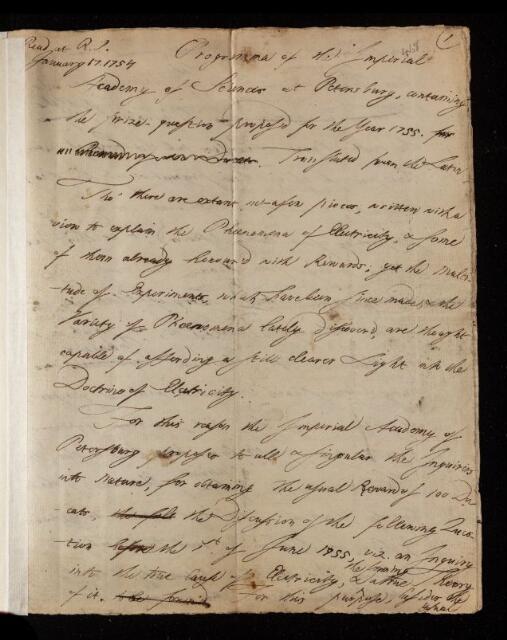 Read at R.S.
January 17. 1754
1
Programma of the Imperial
Academy of Sciences at Petersburg, containing
the prize question proposed for the Year 1755. for
an . Translated from the Latin
Tho' there are extant not a few pieces, written with a
view to explain the Phoenomena of Electricity, & some
of them already honour'd with Rewards; yet the Multi-
-tude of Experiments, which have been since made, & the
Variety of Phoenomena lately discover'd, are thought
capable of affording a still clearer Light into the
Doctrine of Electricity.
For this reason the Imperial Academy of
Petersburg proposes to all & singular the Inquirers
into Nature, for obtaining the usual Reward of 100 Du-
cats, the the Discussion of the following Ques-
-tion before the 1st of June 1755, viz. an Inquiry
into the true Cause of Electricity, & a true Theory
of it. the For this purpose, besides the
what